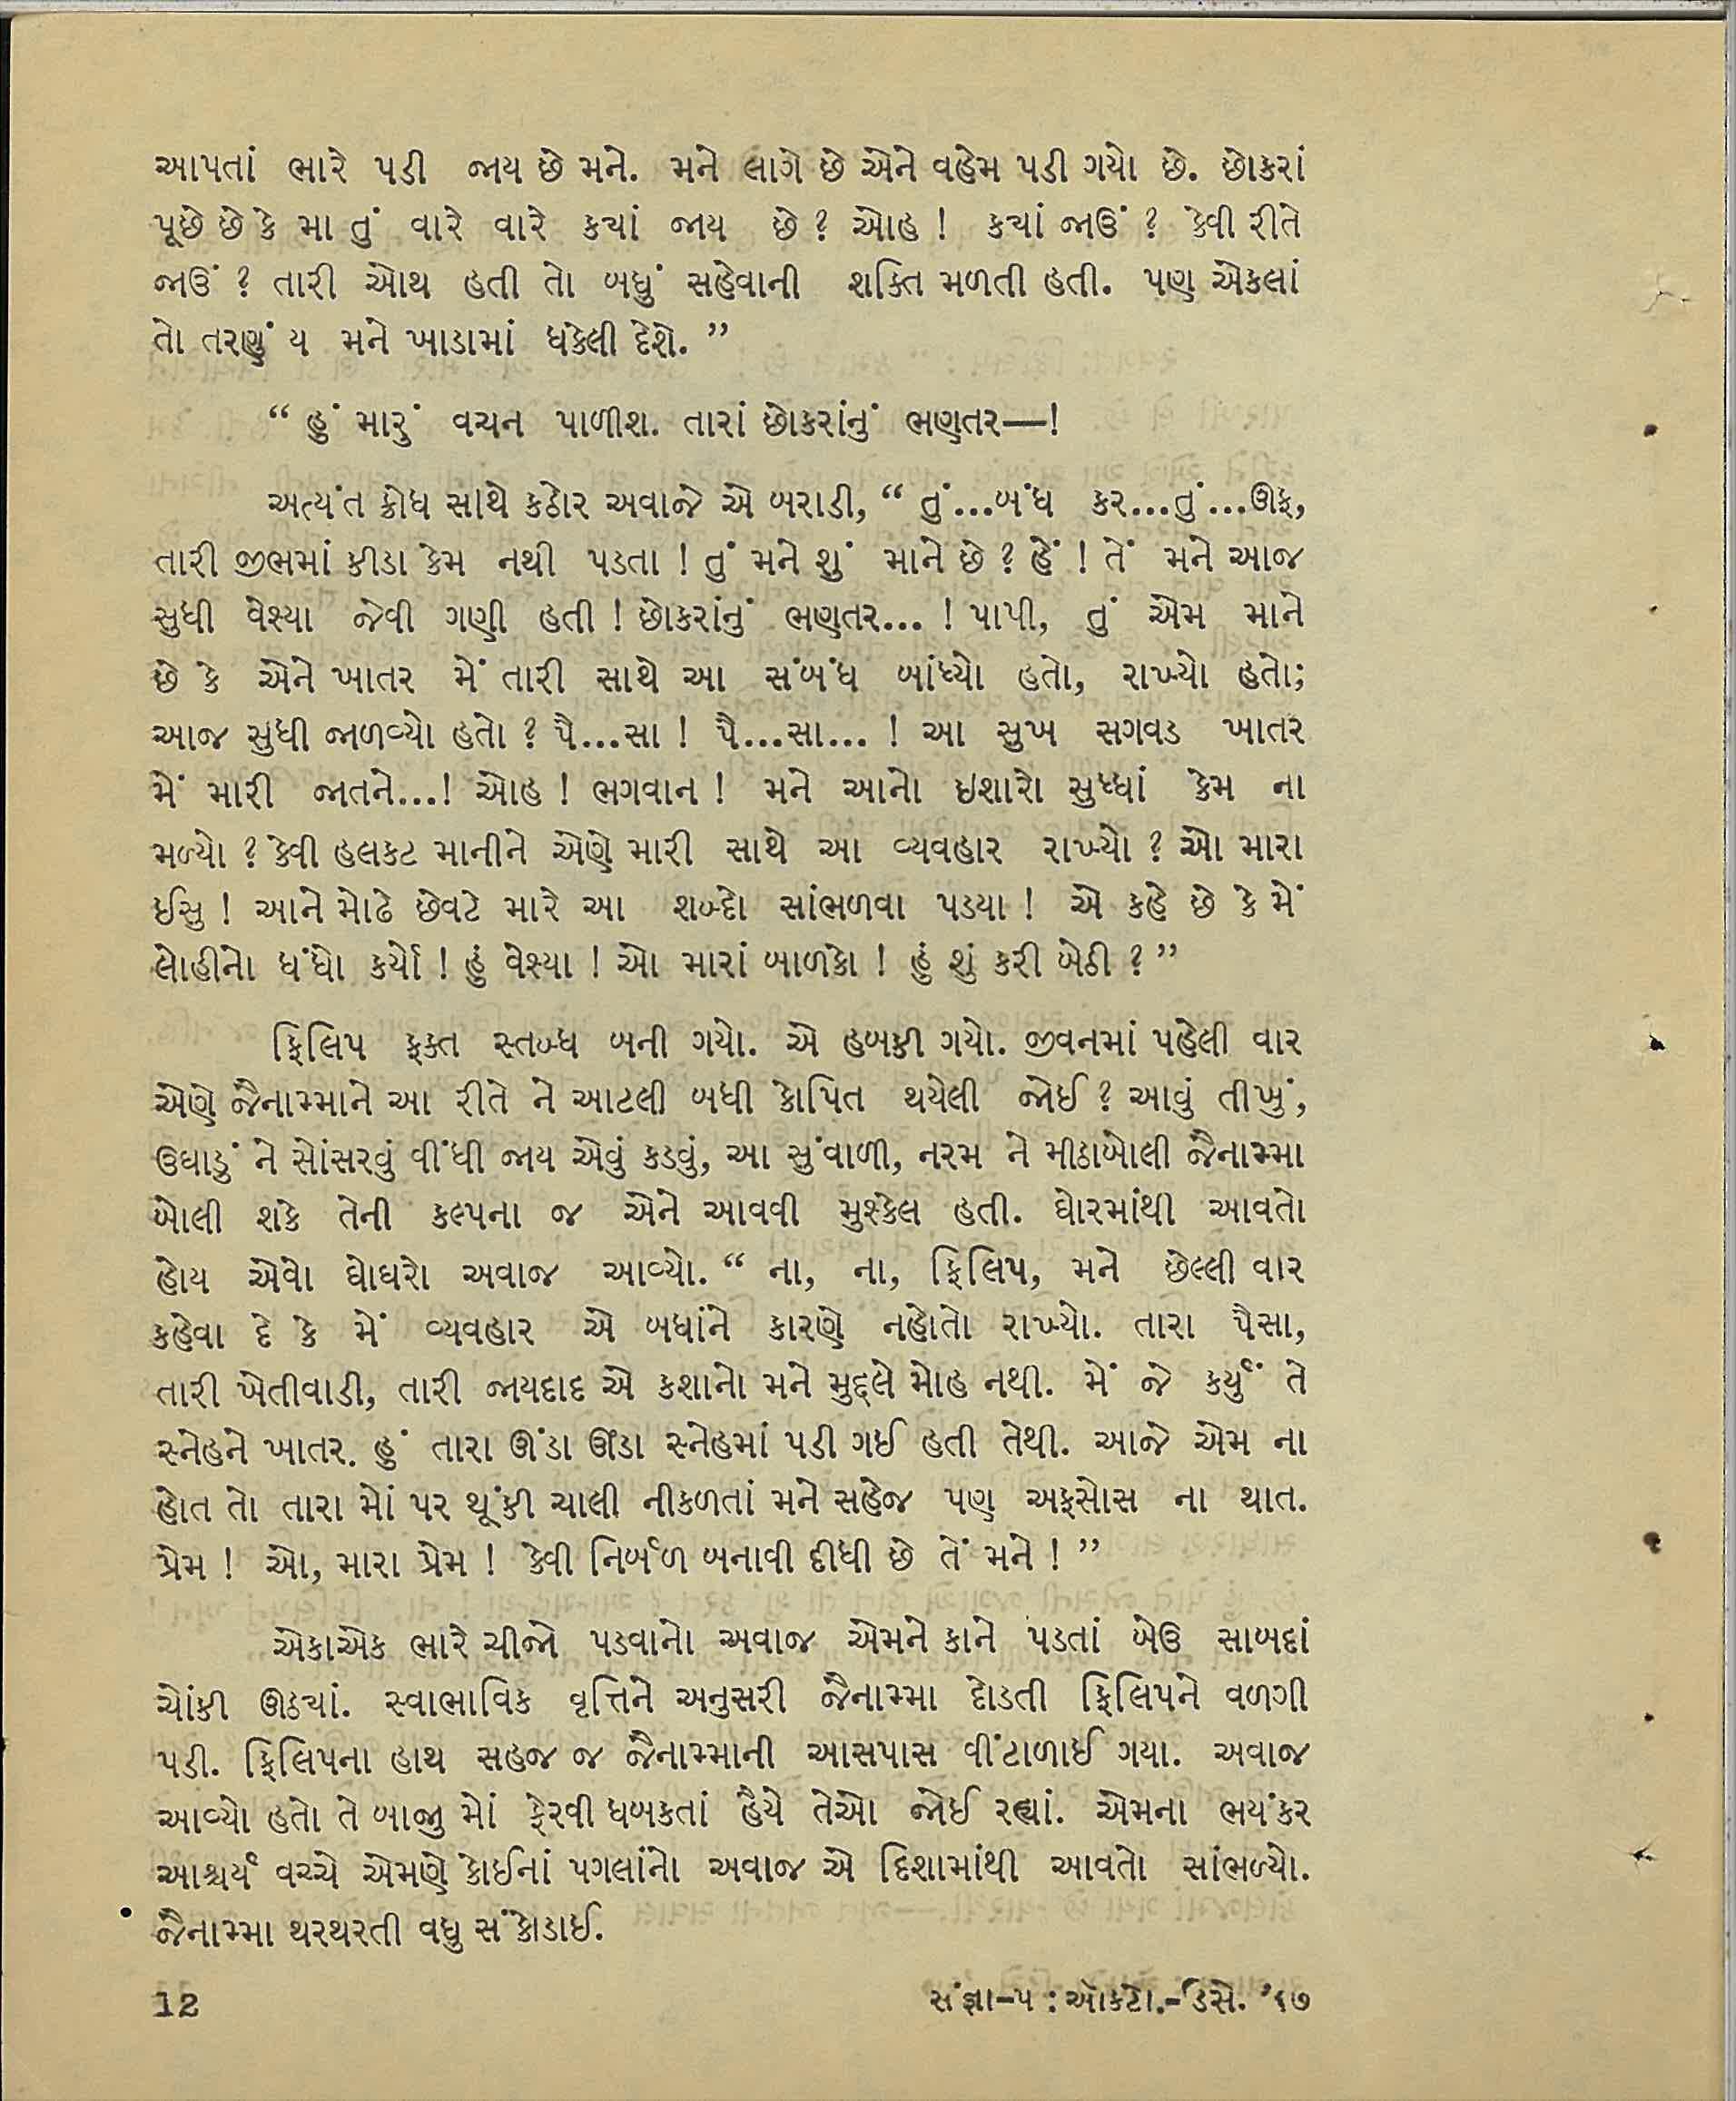 આપતાં ભારે પડી જાય છે મને. મને લાગે છે એને વહેમ પડી ગયો છે. છોકરાં
પૂછે છે કે મા તું વારે વારે કયાં જાય છે? ઓહ! કયાં જાઉં? કેવી રીતે
જાઉં? તારી ઓથ હતી તો બધું સહેવાની શક્તિ મળતી હતી. પણ એકલાં
તો તરણું ય મને ખાડામાં ધકેલી દેશે.”
“હું મારું વચન પાળીશ. તારાં છોકરાંનું ભણતર—!
અત્યંત ક્રોધ સાથે કઠોર અવાજે એ બરાડી, “તું...બંધ કર...તું...ઊફ,
તારી જીભમાં કીડા કેમ નથી પડતા! તું મને શું માને છે? હેં! તેં મને આજ
સુધી વેશ્યા જેવી ગણી હતી! છોકરાંનું ભણતર...! પાપી, તું એમ માને
છે કે એને ખાતર મેં તારી સાથે આ સંબંધ બાંધ્યો હતો, રાખ્યો હતો;
આજ સુધી જાળવ્યો હતો? પૈ...સા! પૈ...સા...! આ સુખ સગવડ ખાતર
મેં મારી જાતને...! ઓહ! ભગવાન! મને આનો ઇશારો સુધ્ધાં કેમ ના
મળ્યો? કેવી હલકટ માનીને એણે મારી સાથે આ વ્યવહાર રાખ્યો? ઓ મારા
ઈસુ! આને મોઢે છેવટે મારે આ શબ્દો સાંભળવા પડયા! એ કહે છે કે મેં
લોહીનો ધંધો કર્યો! હું વેશ્યા! ઓ મારાં બાળકો! હું શું કરી બેઠી?”
ફિલિપ ફક્ત સ્તબ્ધ બની ગયો. એ હબકી ગયો. જીવનમાં પહેલી વાર
એણે જૈનામ્માને આ રીતે ને આટલી બધી કોપિત થયેલી જોઈ? આવું તીખું,
ઉઘાડું ને સોંસરવું વીંધી જાય એવું કડવું, આ સુંવાળી, નરમ ને મીઠાબોલી જૈનામ્મા
બોલી શકે તેની કલ્પના જ એને આવવી મુશ્કેલ હતી. ઘોરમાંથી આવતો
હોય એવો ઘોઘરો અવાજ આવ્યો. “ના, ના, ફિલિપ, મને છેલ્લી વાર
કહેવા દે કે મેં વ્યવહાર એ બધાંને કારણે નહોતો રાખ્યો. તારા પૈસા,
તારી ખેતીવાડી, તારી જાયદાદ એ કશાનો મને મુદ્દલે મોહ નથી. મેં જે કર્યું તે
સ્નેહને ખાતર. હું તારા ઊંડા ઊંડા સ્નેહમાં પડી ગઈ હતી તેથી. આજે એમ ના
હોત તો તારા મોં પર થૂંકી ચાલી નીકળતાં મને સહેજ પણ અફસોસ ના થાત.
પ્રેમ! ઓ, મારા પ્રેમ! કેવી નિર્બળ બનાવી દીધી છે તેં મને!”
એકાએક ભારે ચીજો પડવાનો અવાજ એમને કાને પડતાં બેઉ સાબદાં
ચોંકી ઊઠયાં. સ્વાભાવિક વૃત્તિને અનુસરી જૈનામ્મા દોડતી ફિલિપને વળગી
પડી. ફિલિપના હાથ સહજ જ જૈનામ્માની આસપાસ વીંટાળાઈ ગયા. અવાજ
આવ્યો હતો તે બાજુ મોં ફેરવી ધબકતાં હૈયે તેઓ જોઈ રહ્યાં. એમના ભયંકર
આશ્ચર્ય વચ્ચે એમણે કોઈનાં પગલાંનો અવાજ એ દિશામાંથી આવતો સાંભળ્યો.
જૈનામ્મા થરથરતી વધુ સંકોડાઈ.
12
સંજ્ઞા-૫ : ઑકટો.-ડિસે. '૬૭